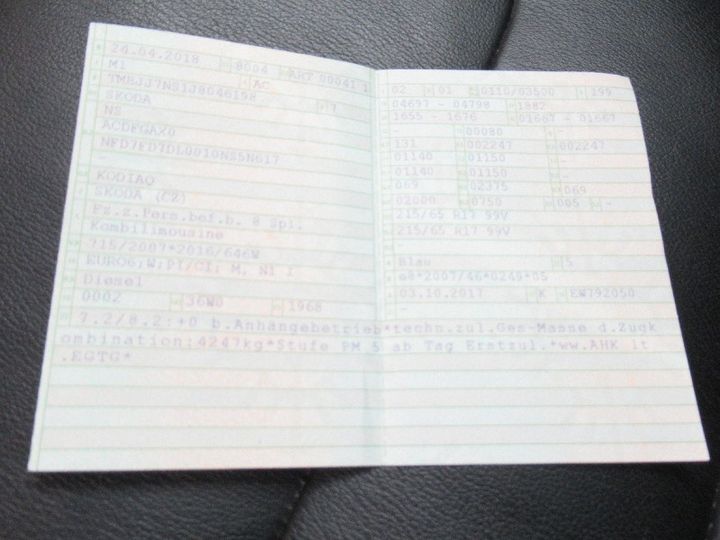 24.04.2018 8004 ART 00041 1
M1 AC
TMBJJ7NS1J8046198 7
SKODA
NS
ACDFGAX0
NFD7FD7DL0010NS5N617
-
KODIAQ
SKODA (CZ)
Fz.z.Pers.bef.b. 8 Spl.
Kombilimousine
715/2007*2016/646W
EURO6;W;PI/CI; M, N1 I
Diesel
0002 36W0 1968
02 01 0110/03500 199
04697 - 04798 1882
1655 - 1676 01667 - 01667
- 00080 -
131 002247 002247
01140 01150 -
01140 01150 -
069 02375 069
02000 0750 005 -
215/65 R17 99V
215/65 R17 99V
-
Blau 5
e8*2007/46*0249*05
03.10.2017 K EW792050
7.2/8.2:+0 b.Anhängebetrieb*techn.zul.Ges-Masse d.Zugk
ombination:4247kg*Stufe PM 5 ab Tag Erstzul.*ww.AHK lt
.EGTG*